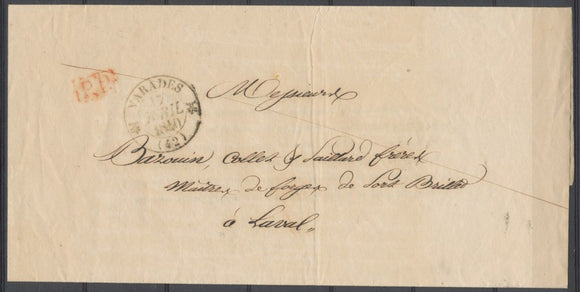 P.P.
VARADES
17
AVRIL
1840
(42)
Messieurs
Bazouin, Collet & Paillard frères
Maîtres de forges de Port Brillet
à Laval